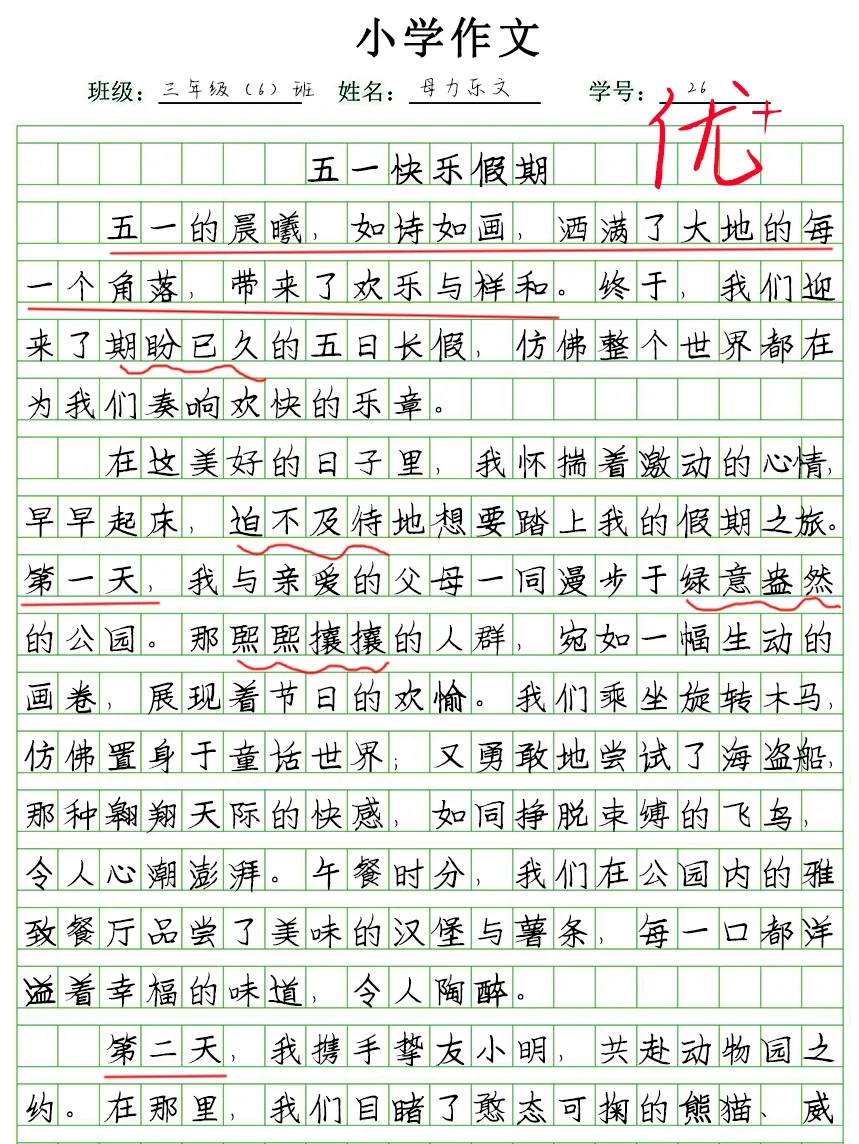 小学作文
班级：三年级（6）班 姓名：母力乐文 学号：26
优+
五一快乐假期
五一的晨曦，如诗如画，洒满了大地的每
一个角落，带来了欢乐与样和。终于，我们迎
来了期盼已久的五日长假，仿佛整个世界都在
为我们奏响欢快的乐章。
在这美好的日子里，我怀揣着激动的心情，
早早起床，迫不及待地想要踏上我的假期之旅。
第一天，我与亲爱的父母一同漫步于绿意盎然
的公园。那熙熙攘攘的人群，宛如一幅生动的
画卷，展现着节日的欢愉。我们乘坐旋转木马，
仿佛置身于童话世界；又勇敢地尝试了海盗船，
那种翱翔天际的快感，如同挣脱束缚的飞鸟，
令人心潮澎湃。午餐时分，我们在公园内的雅
致餐厅品尝了美味的汉堡与薯条，每一口都洋
溢着幸福的味道，令人陶醉。
第二天，我携手挚友小明，共赴动物园之
约。在那里，我们目睹了憨态可掬的熊猫、威